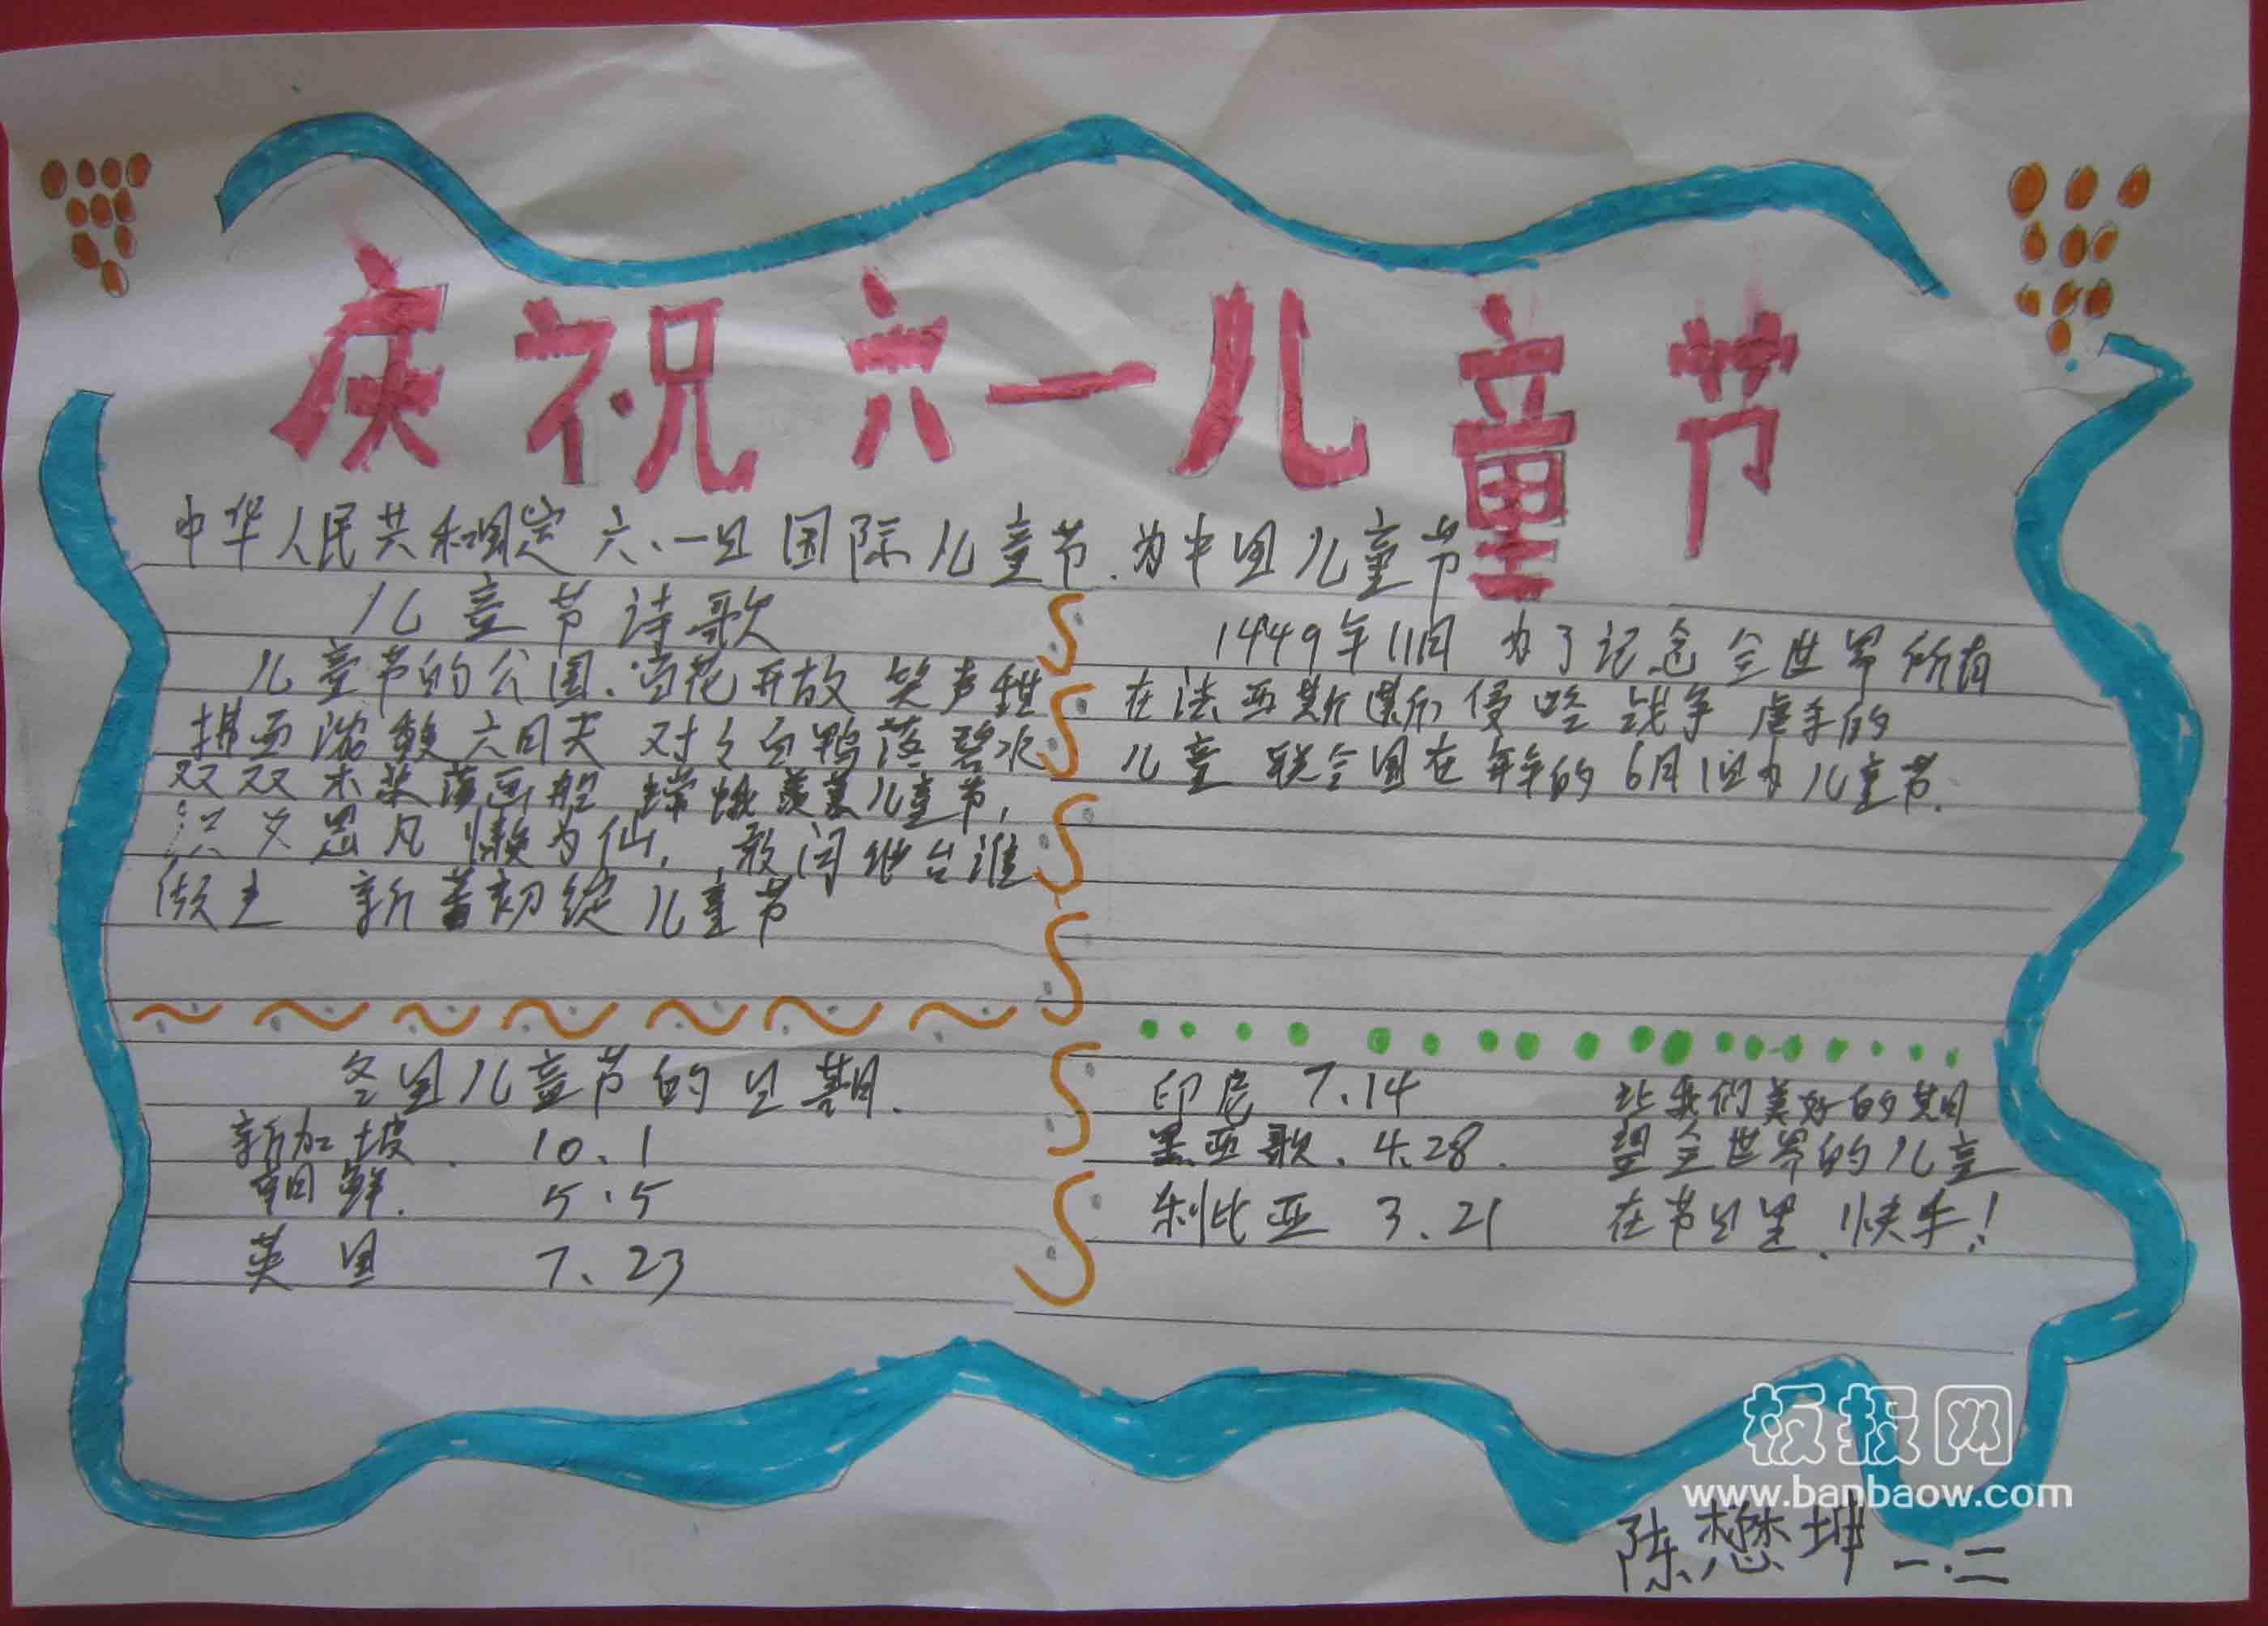 庆祝六一儿童节
中华人民共和国定 六、一日 国际儿童节.为中国儿童节
儿童节诗歌
儿童节的公园.雪花开放 笑声甜
拂面 六日天 对 白鸭落碧水
双双木桨荡画船 嫦娥羡慕儿童节,
思凡懒为仙, 敢问 台谁
做主 新蕾初绽儿童节
1449年11月 为了记念全世界所有
在法西斯 侵略战争 的
儿童 联合国在每年的6月1日为儿童节.
各国儿童节的日期.
新加坡. 10、1
朝鲜. 5.5
英国 7、23
印尼 7、14
墨西歌. 4.28.
利比亚 3.21
让我们美好的期
望全世界的儿童
在节日里、快乐!
板报网
www.banbaow.com
陈懋坤 一.二